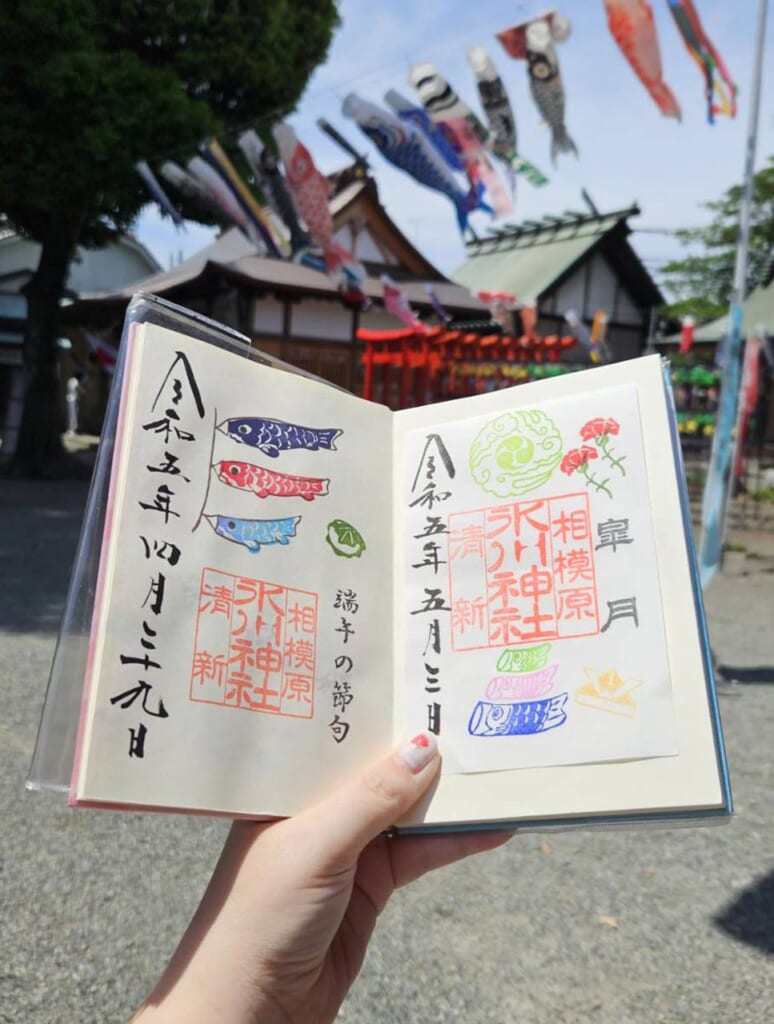 皐月
相模原
氷川神社
清新
令和五年五月三日
端午の節句
相模原
氷川神社
清新
令和五年四月二十九日